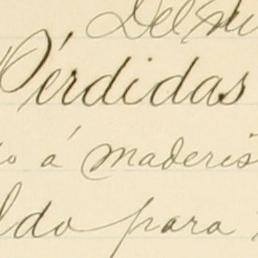 Del mi
Pérdidas
o á maderis
ldo para